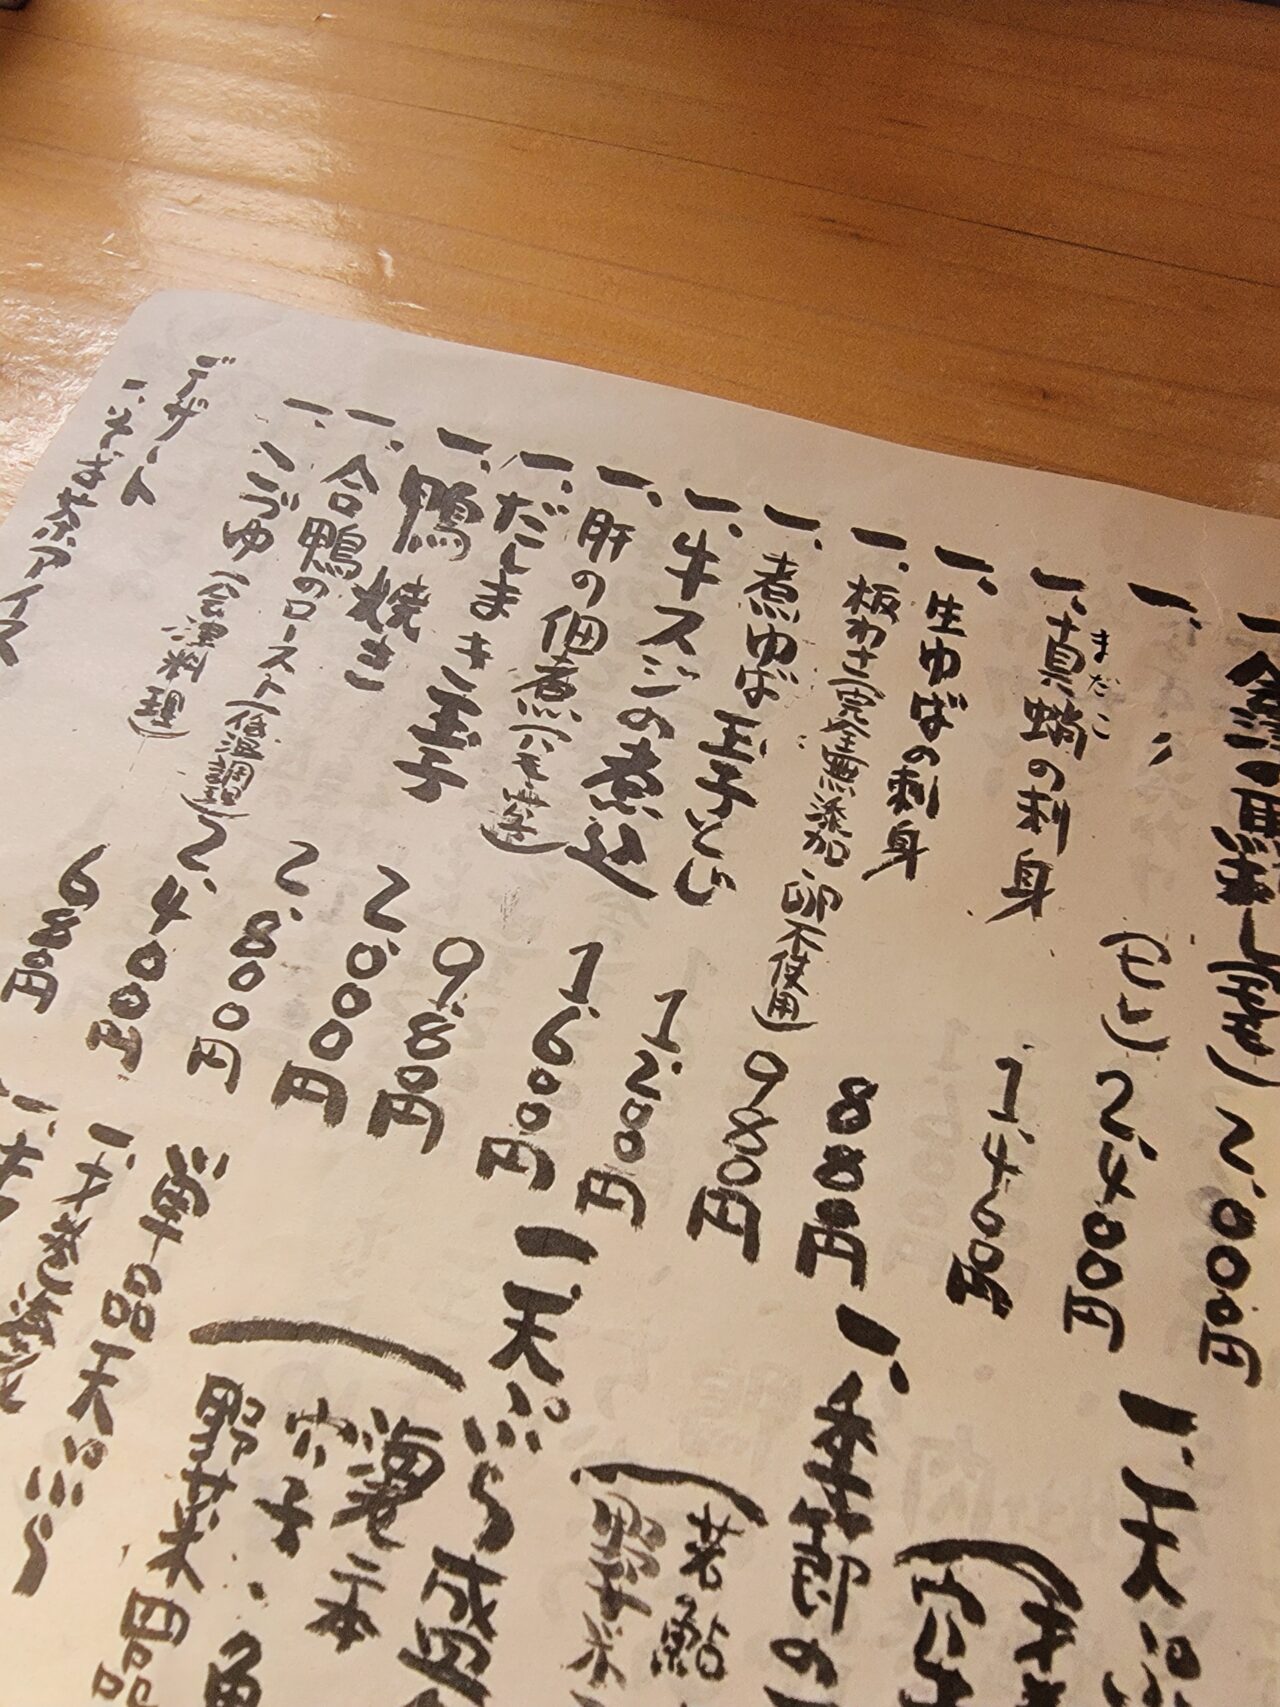 2,000円
一、 〃 (モモ) 2,400円
一、真蛸の刺身 1,460円
まだこ
一、生ゆばの刺身 880円
一、板わさ(完全無添加 卵不使用) 980円
一、煮ゆば玉子とじ 1,200円
一、牛スジの煮込 1,600円
一、肝の佃煮
一、だしまき玉子 980円
一、鴨焼き 2,000円
一、合鴨のロースト(低温調理) 2,800円
一、こづゆ(会津料理) 2,400円
デザート
一、そば茶アイス 680円
一、天ぷ
一、季節の
若鮎
野菜
一、天ぷら盛
海老二本
穴子
野菜四品
単品天ぷら
一、才巻海老